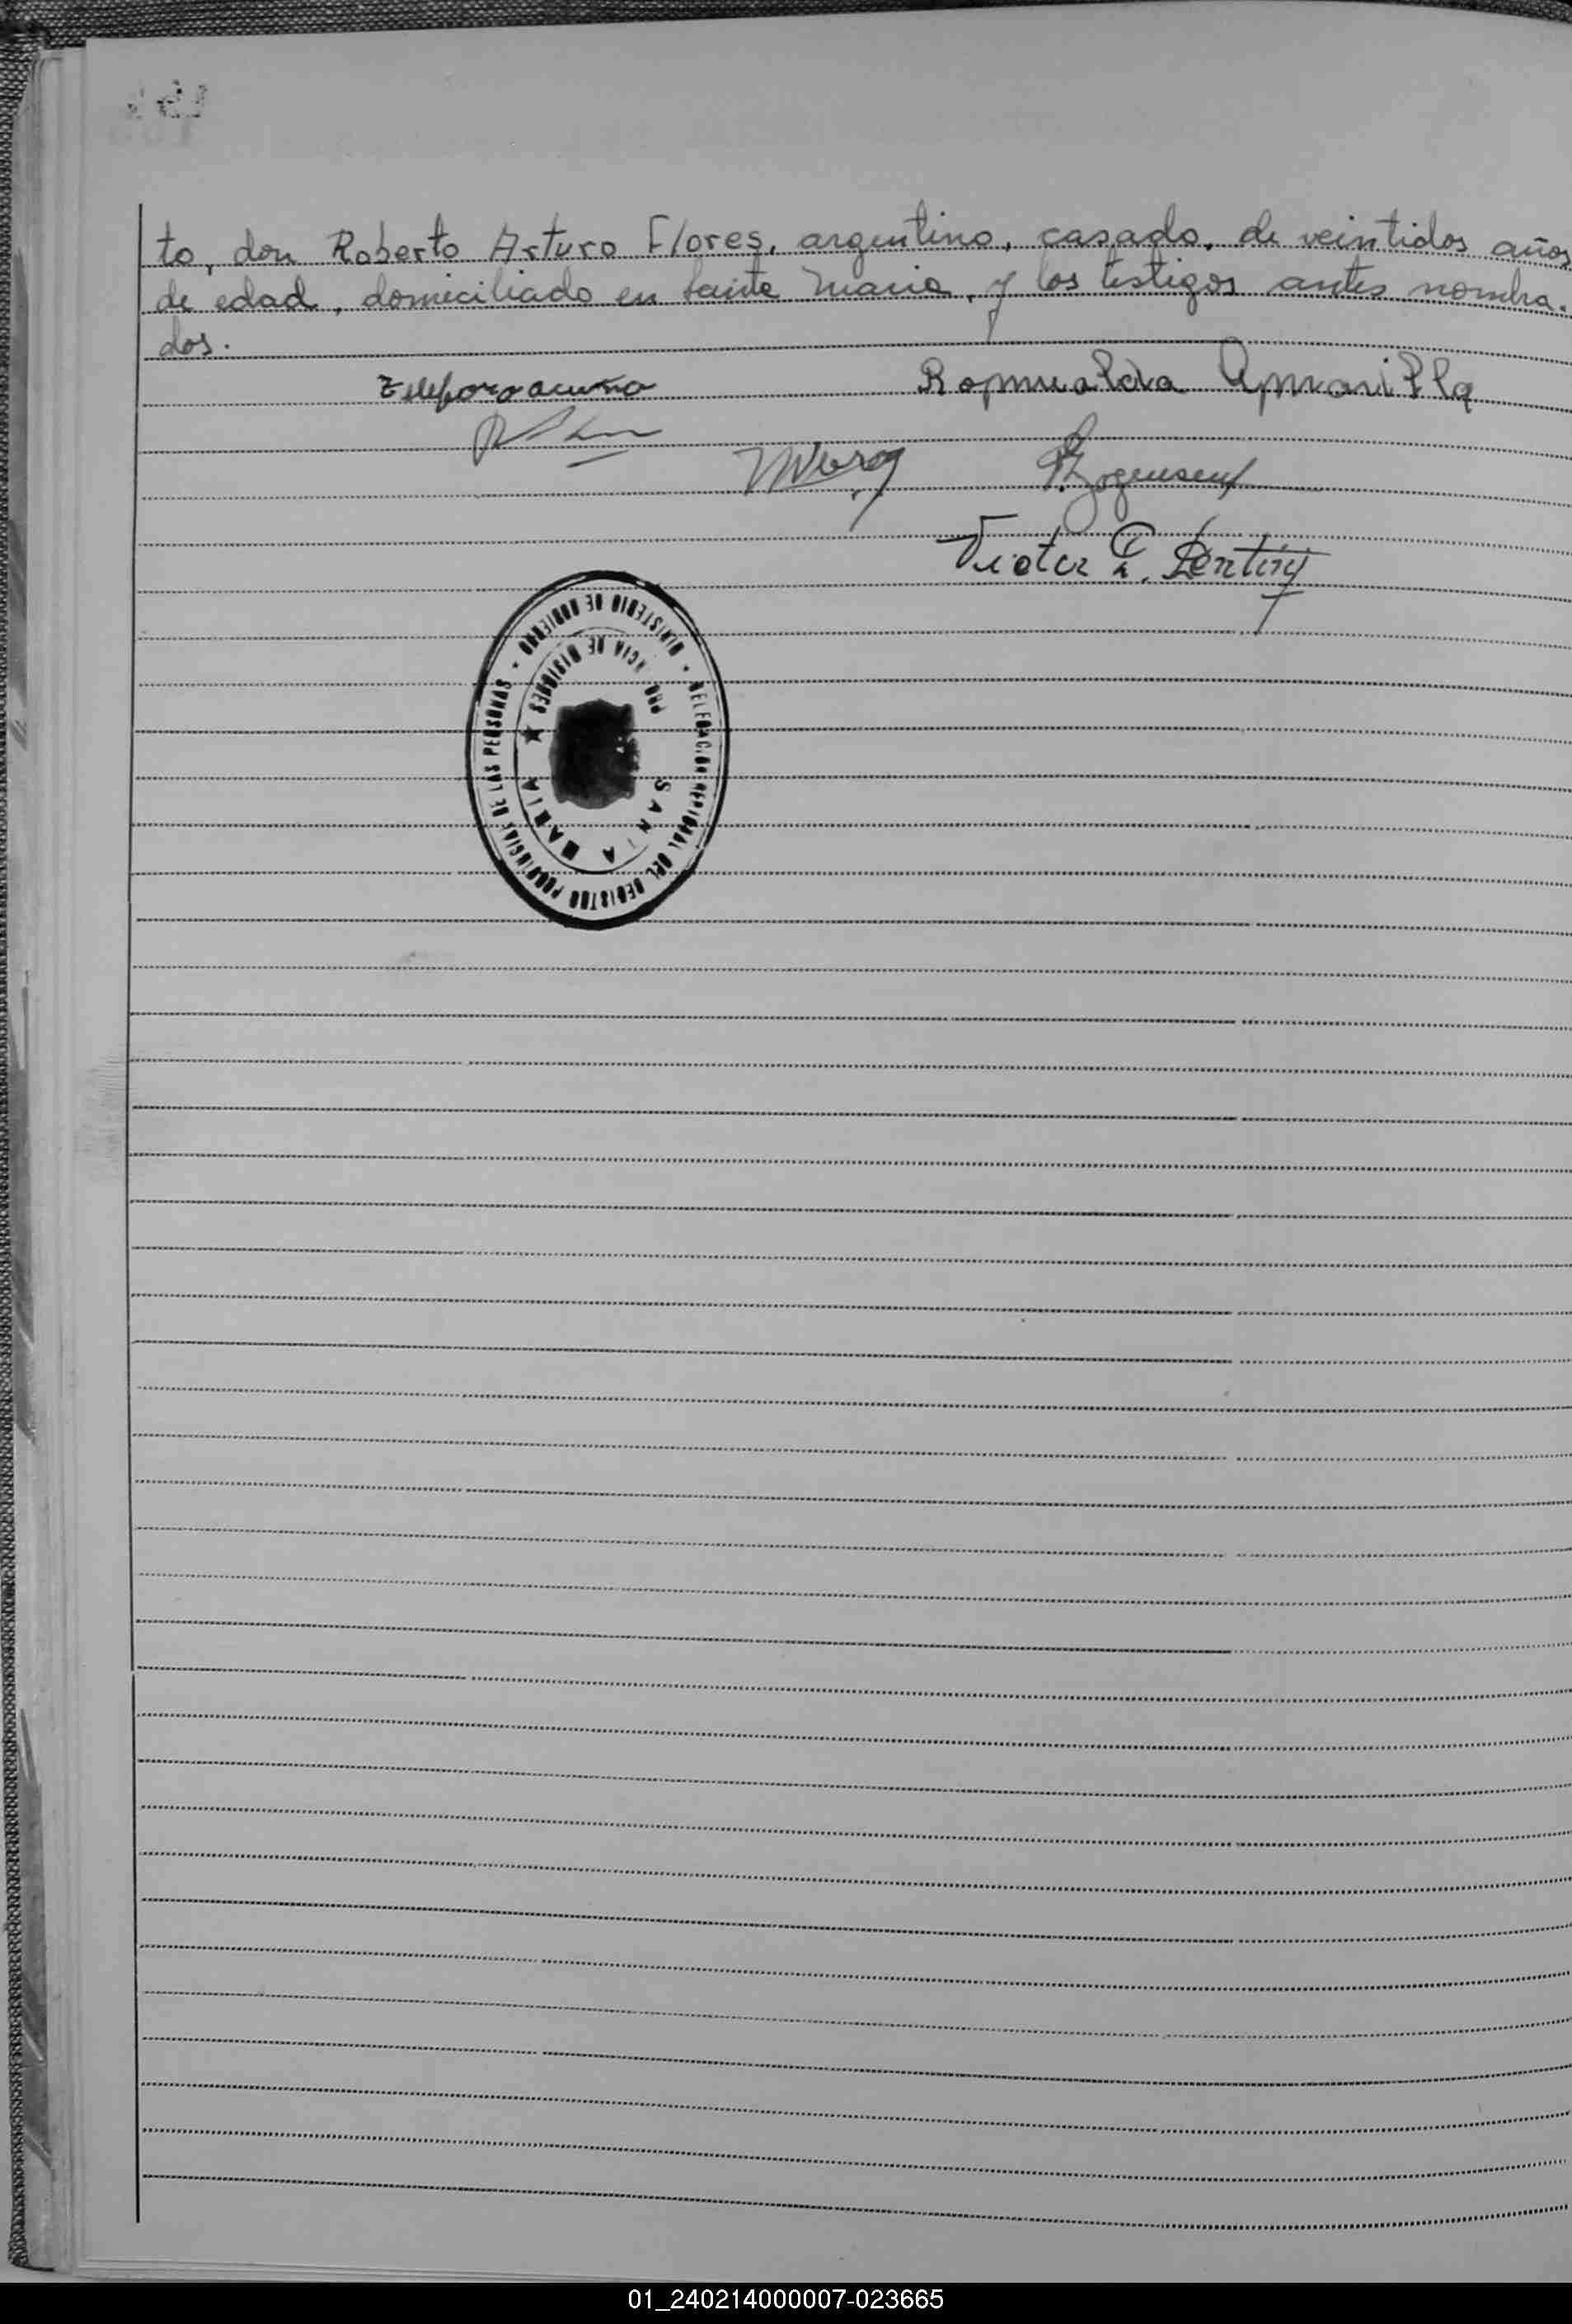 to, don Roberto Arturo Flores, argentino, casado, de veintidos años
de edad, domiciliado en Santa Maria, y los testigos antes nombra-
dos.
Zeleforo acuña
Romualda Amarilla
Victor
MINISTERIO DE GOBIERNO • DELEGACION REGIONAL DEL REGISTRO PROVINCIAL DE LAS PERSONAS •
PROVINCIA DE MISIONES ★ SANTA MARIA
01_240214000007-023665